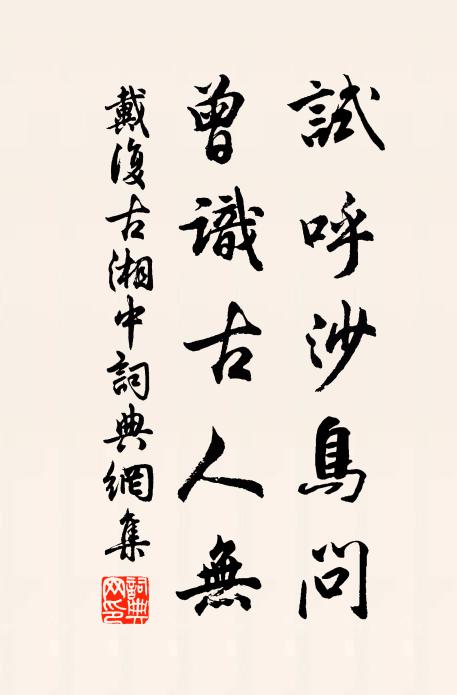 試呼沙鳥問
曾識古人無
戴復古湘中詞典網集
詞典網印